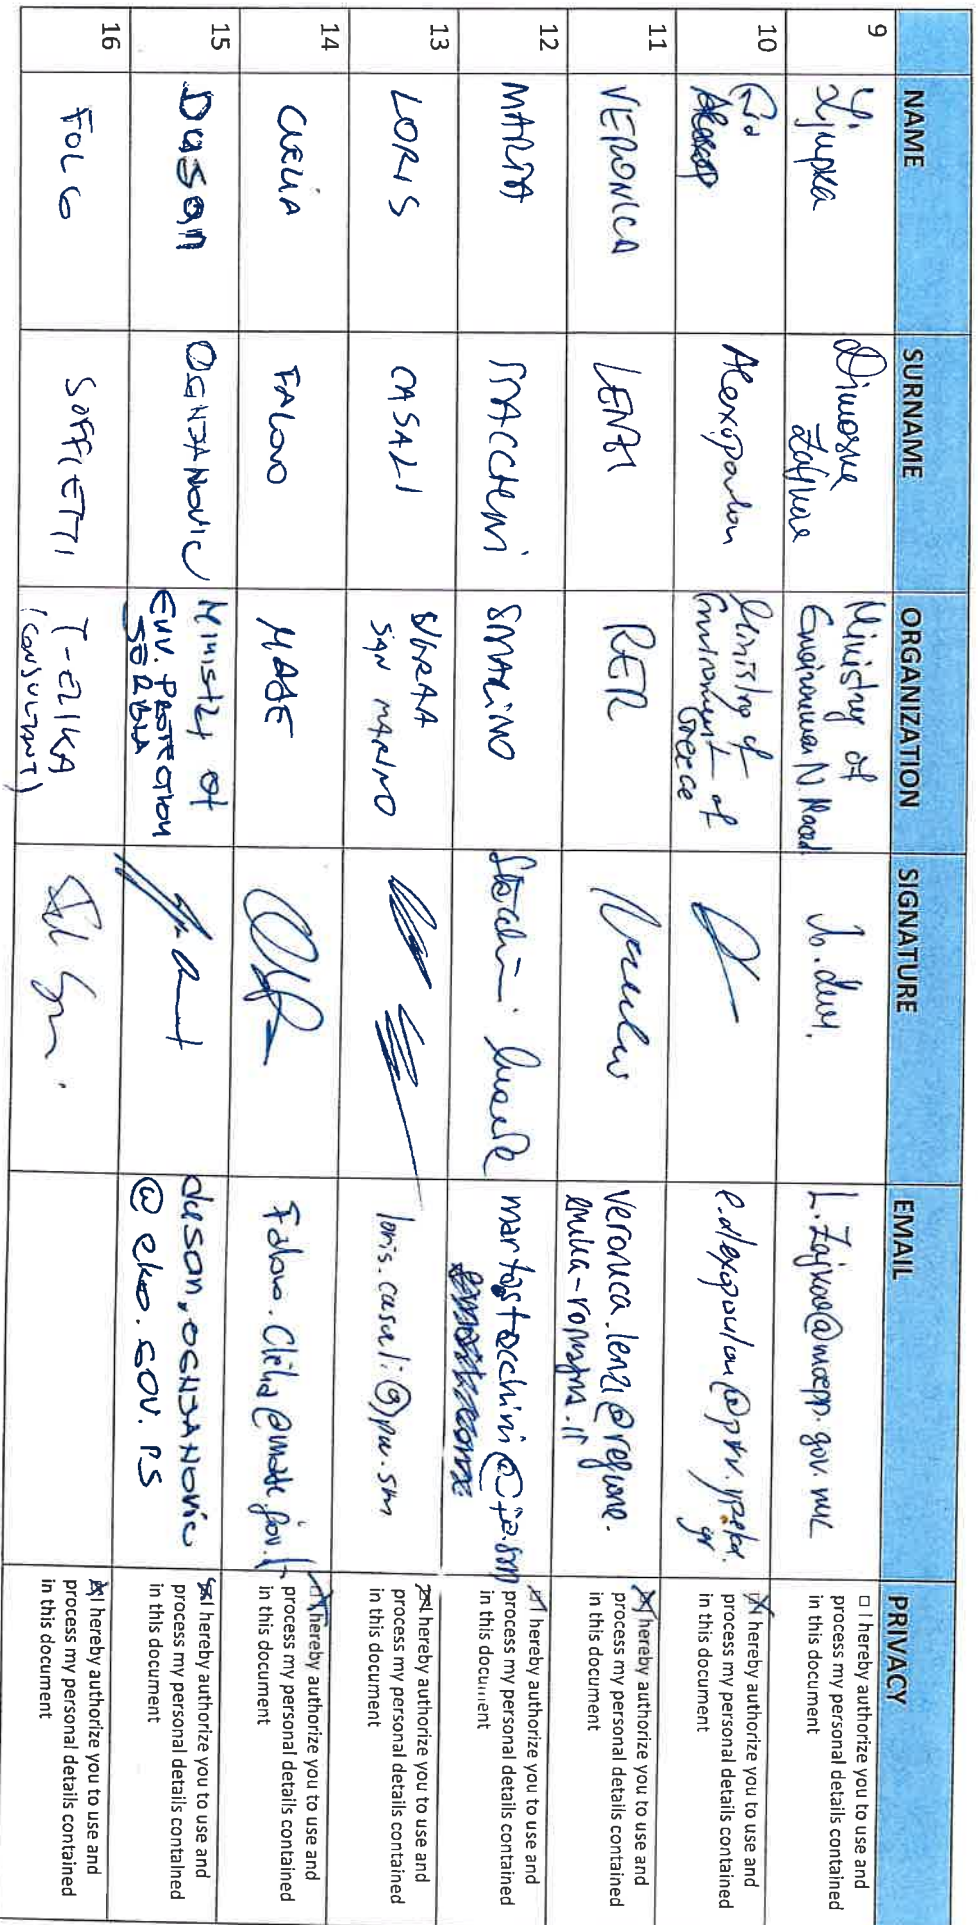 NAME SURNAME ORGANIZATION SIGNATURE EMAIL PRIVACY
9
Ljupka
Dimoska
Zajkova
Ministry of
Environment N. Maced.
L.Zajkova@moepp.gov.mk
□ I hereby authorize you to use and
process my personal details contained
in this document
10
Alexopoulou
Ministry of
Environment of
Greece
I hereby authorize you to use and
process my personal details contained
in this document
11
VERONICA
LENZI
RER
veronica.lenzi@regione.
emilia-romagna.it
I hereby authorize you to use and
process my personal details contained
in this document
12
MARTA
STACCHINI
SMARINO
I hereby authorize you to use and
process my personal details contained
in this document
13
LORIS
CASALI
SAN MARINO
loris.casali@pa.sm
I hereby authorize you to use and
process my personal details contained
in this document
14
CLELIA
FALOVO
MASE
I hereby authorize you to use and
process my personal details contained
in this document
15
Dusan
OGNJANOVIC
Ministry of
ENV. PROTECTION
SERBIA
dusan.OGNJANOVIC
@ eko.GOV.RS
I hereby authorize you to use and
process my personal details contained
in this document
16
FOLCO
SOFFIETTI
T-ZIKA
(CONSULTANT)
I hereby authorize you to use and
process my personal details contained
in this document